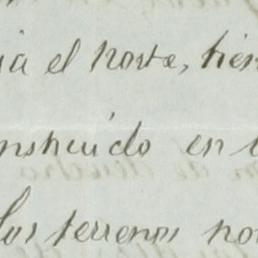 el norte, tien
nstruido en
los terrenos no